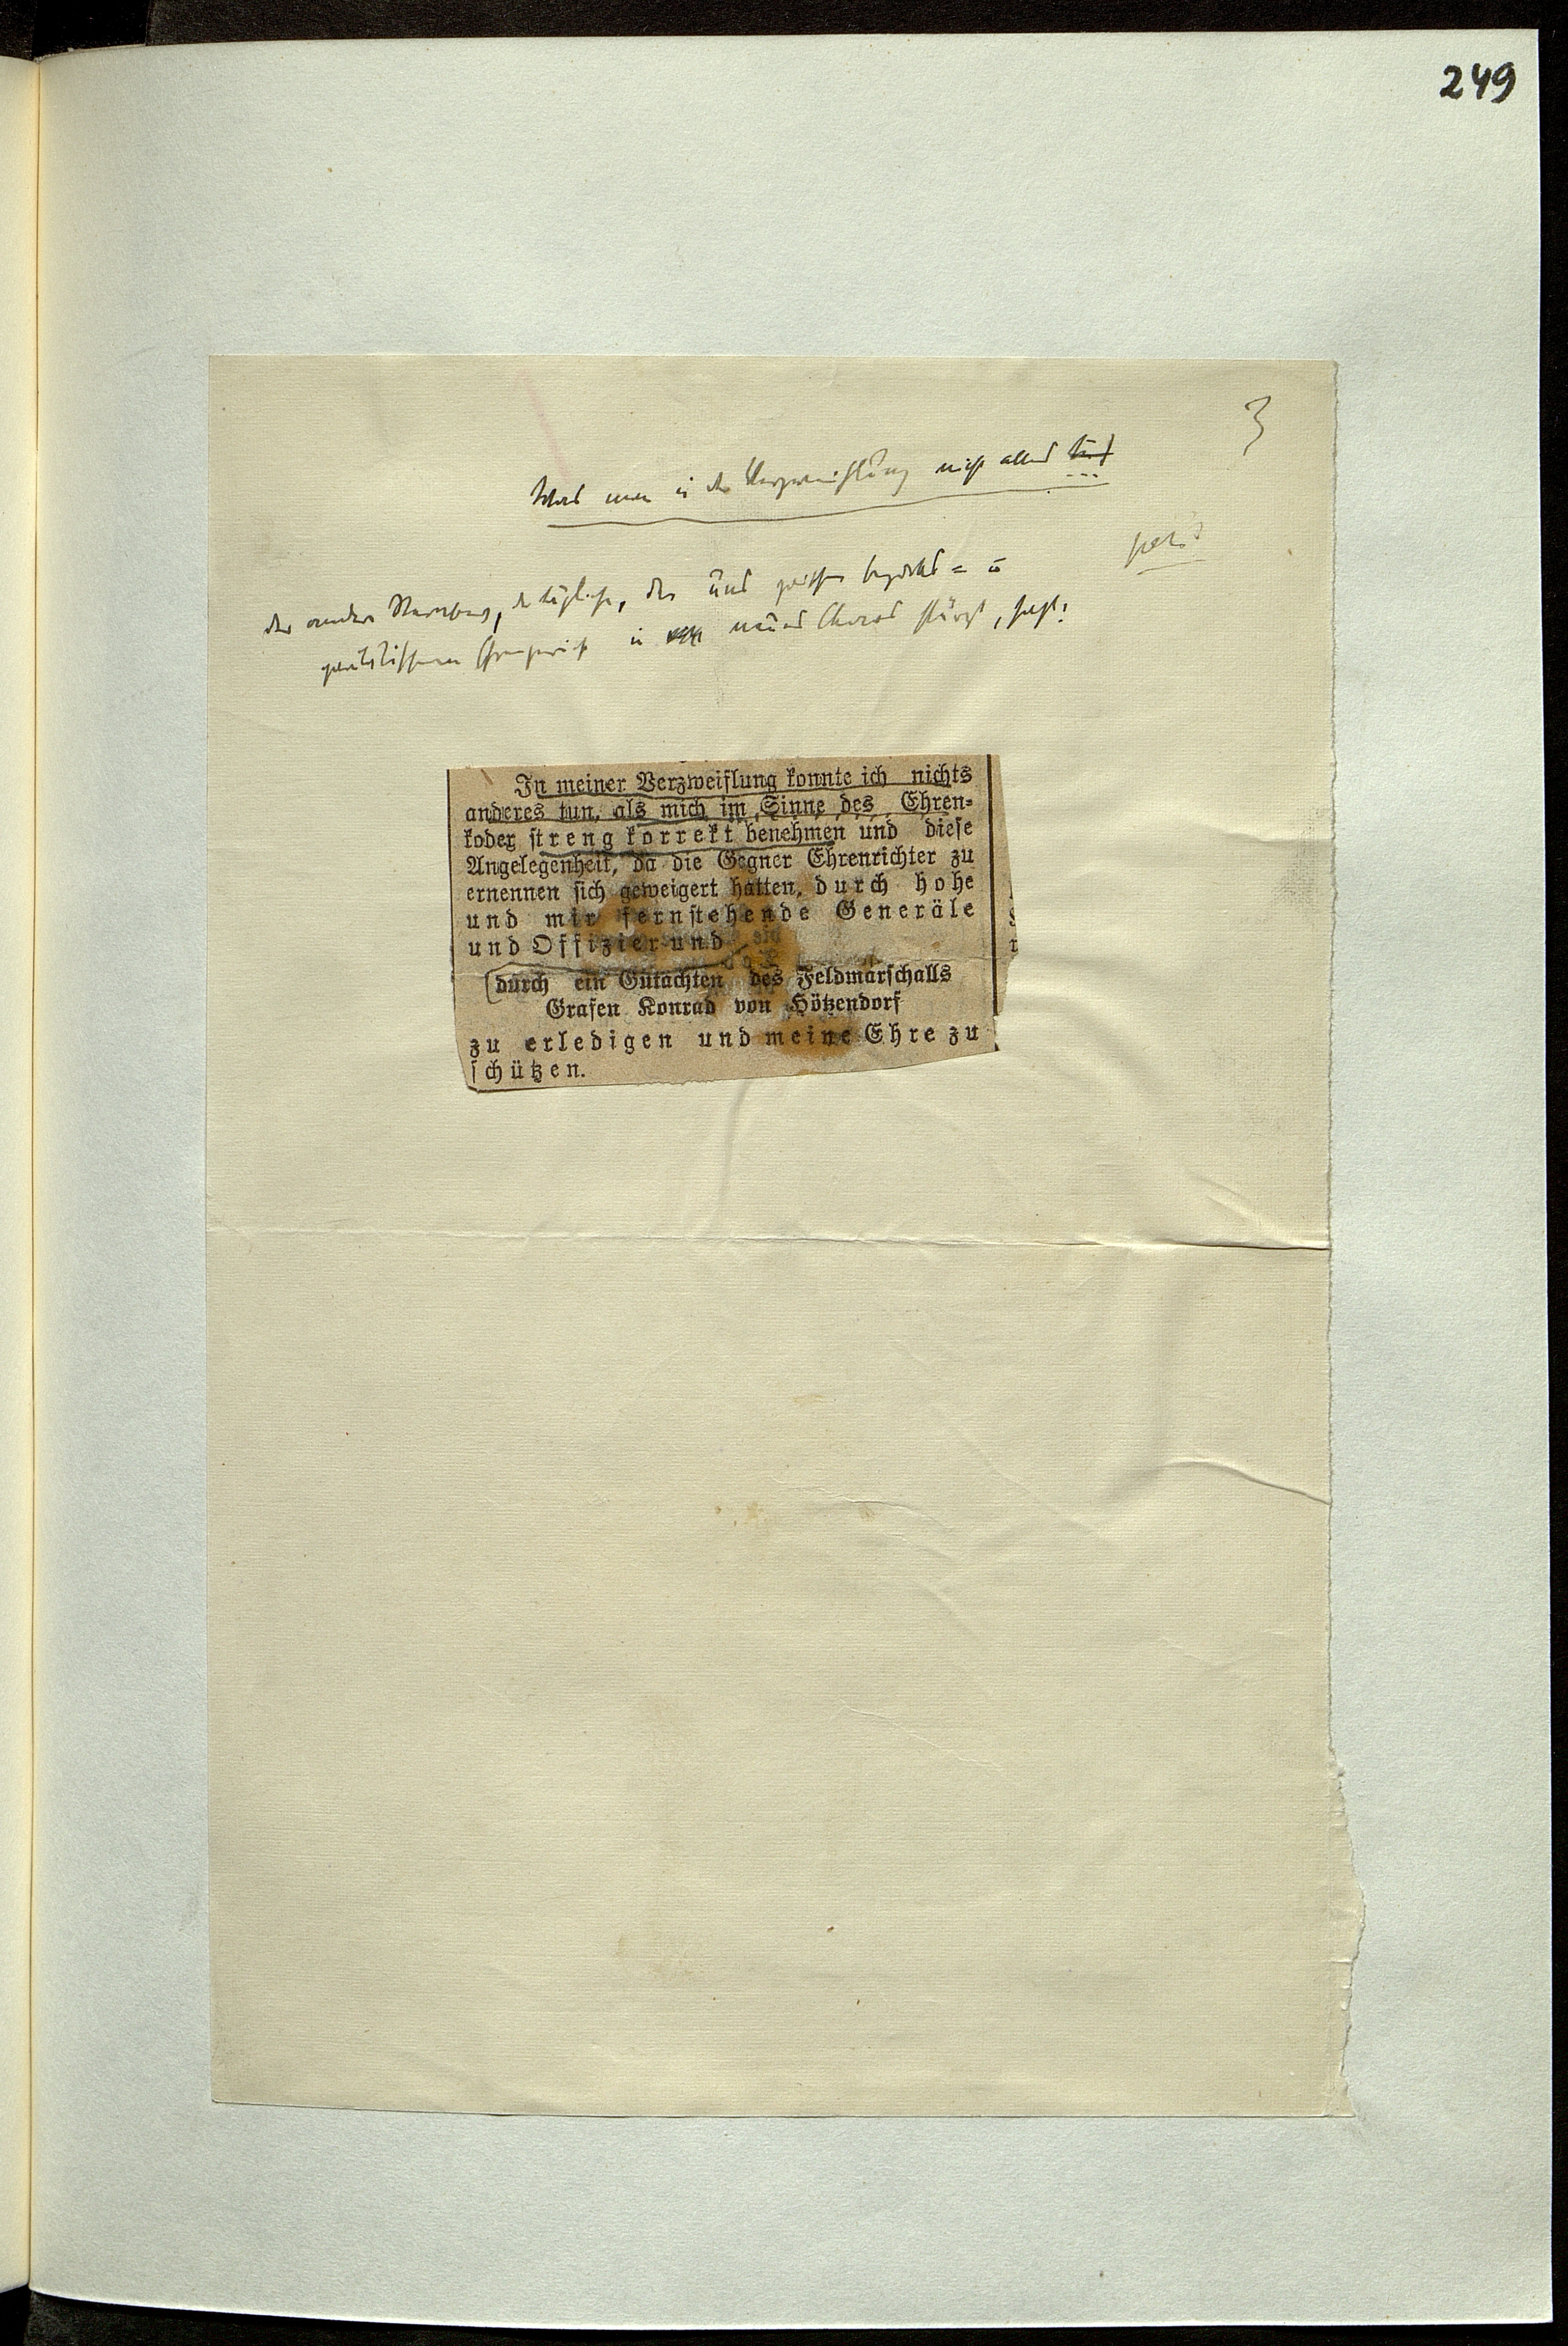 249
3
Was man in der Verzweiflung nicht alles tut
...
petit
der andere, der tägliche, der uns zwischen
in neues Chaos stürzt, sagt:
In meiner Verzweiflung konnte ich nichts
anderes tun, als mich im Sinne des Ehren-
kodex streng korrekt benehmen und diese
Angelegenheit, da die Gegner Ehrenrichter zu
ernennen sich geweigert hatten, durch hohe
und mir fernstehende Generäle
und Offizier und
durch ein Gutachten des Feldmarschalls
Grafen Konrad von Hötzendorf
zu erledigen und meine Ehre zu
schützen.